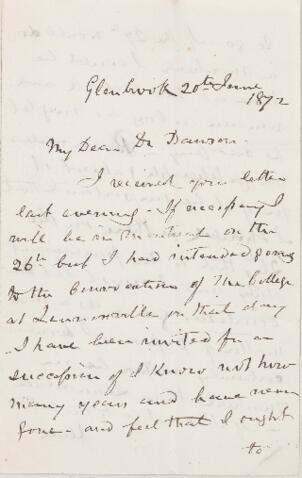 Glenbrook 20th June
1872
My Dear Dr Dawson.
I received your letter
last evening - If necessary I
will be in Montreal on the
26th but I had intended going
to the Convocation of the College
at Lennoxville on that day
- I have been invited for a
succession of I know not how
many years and have never
gone - and feel that I ought
to